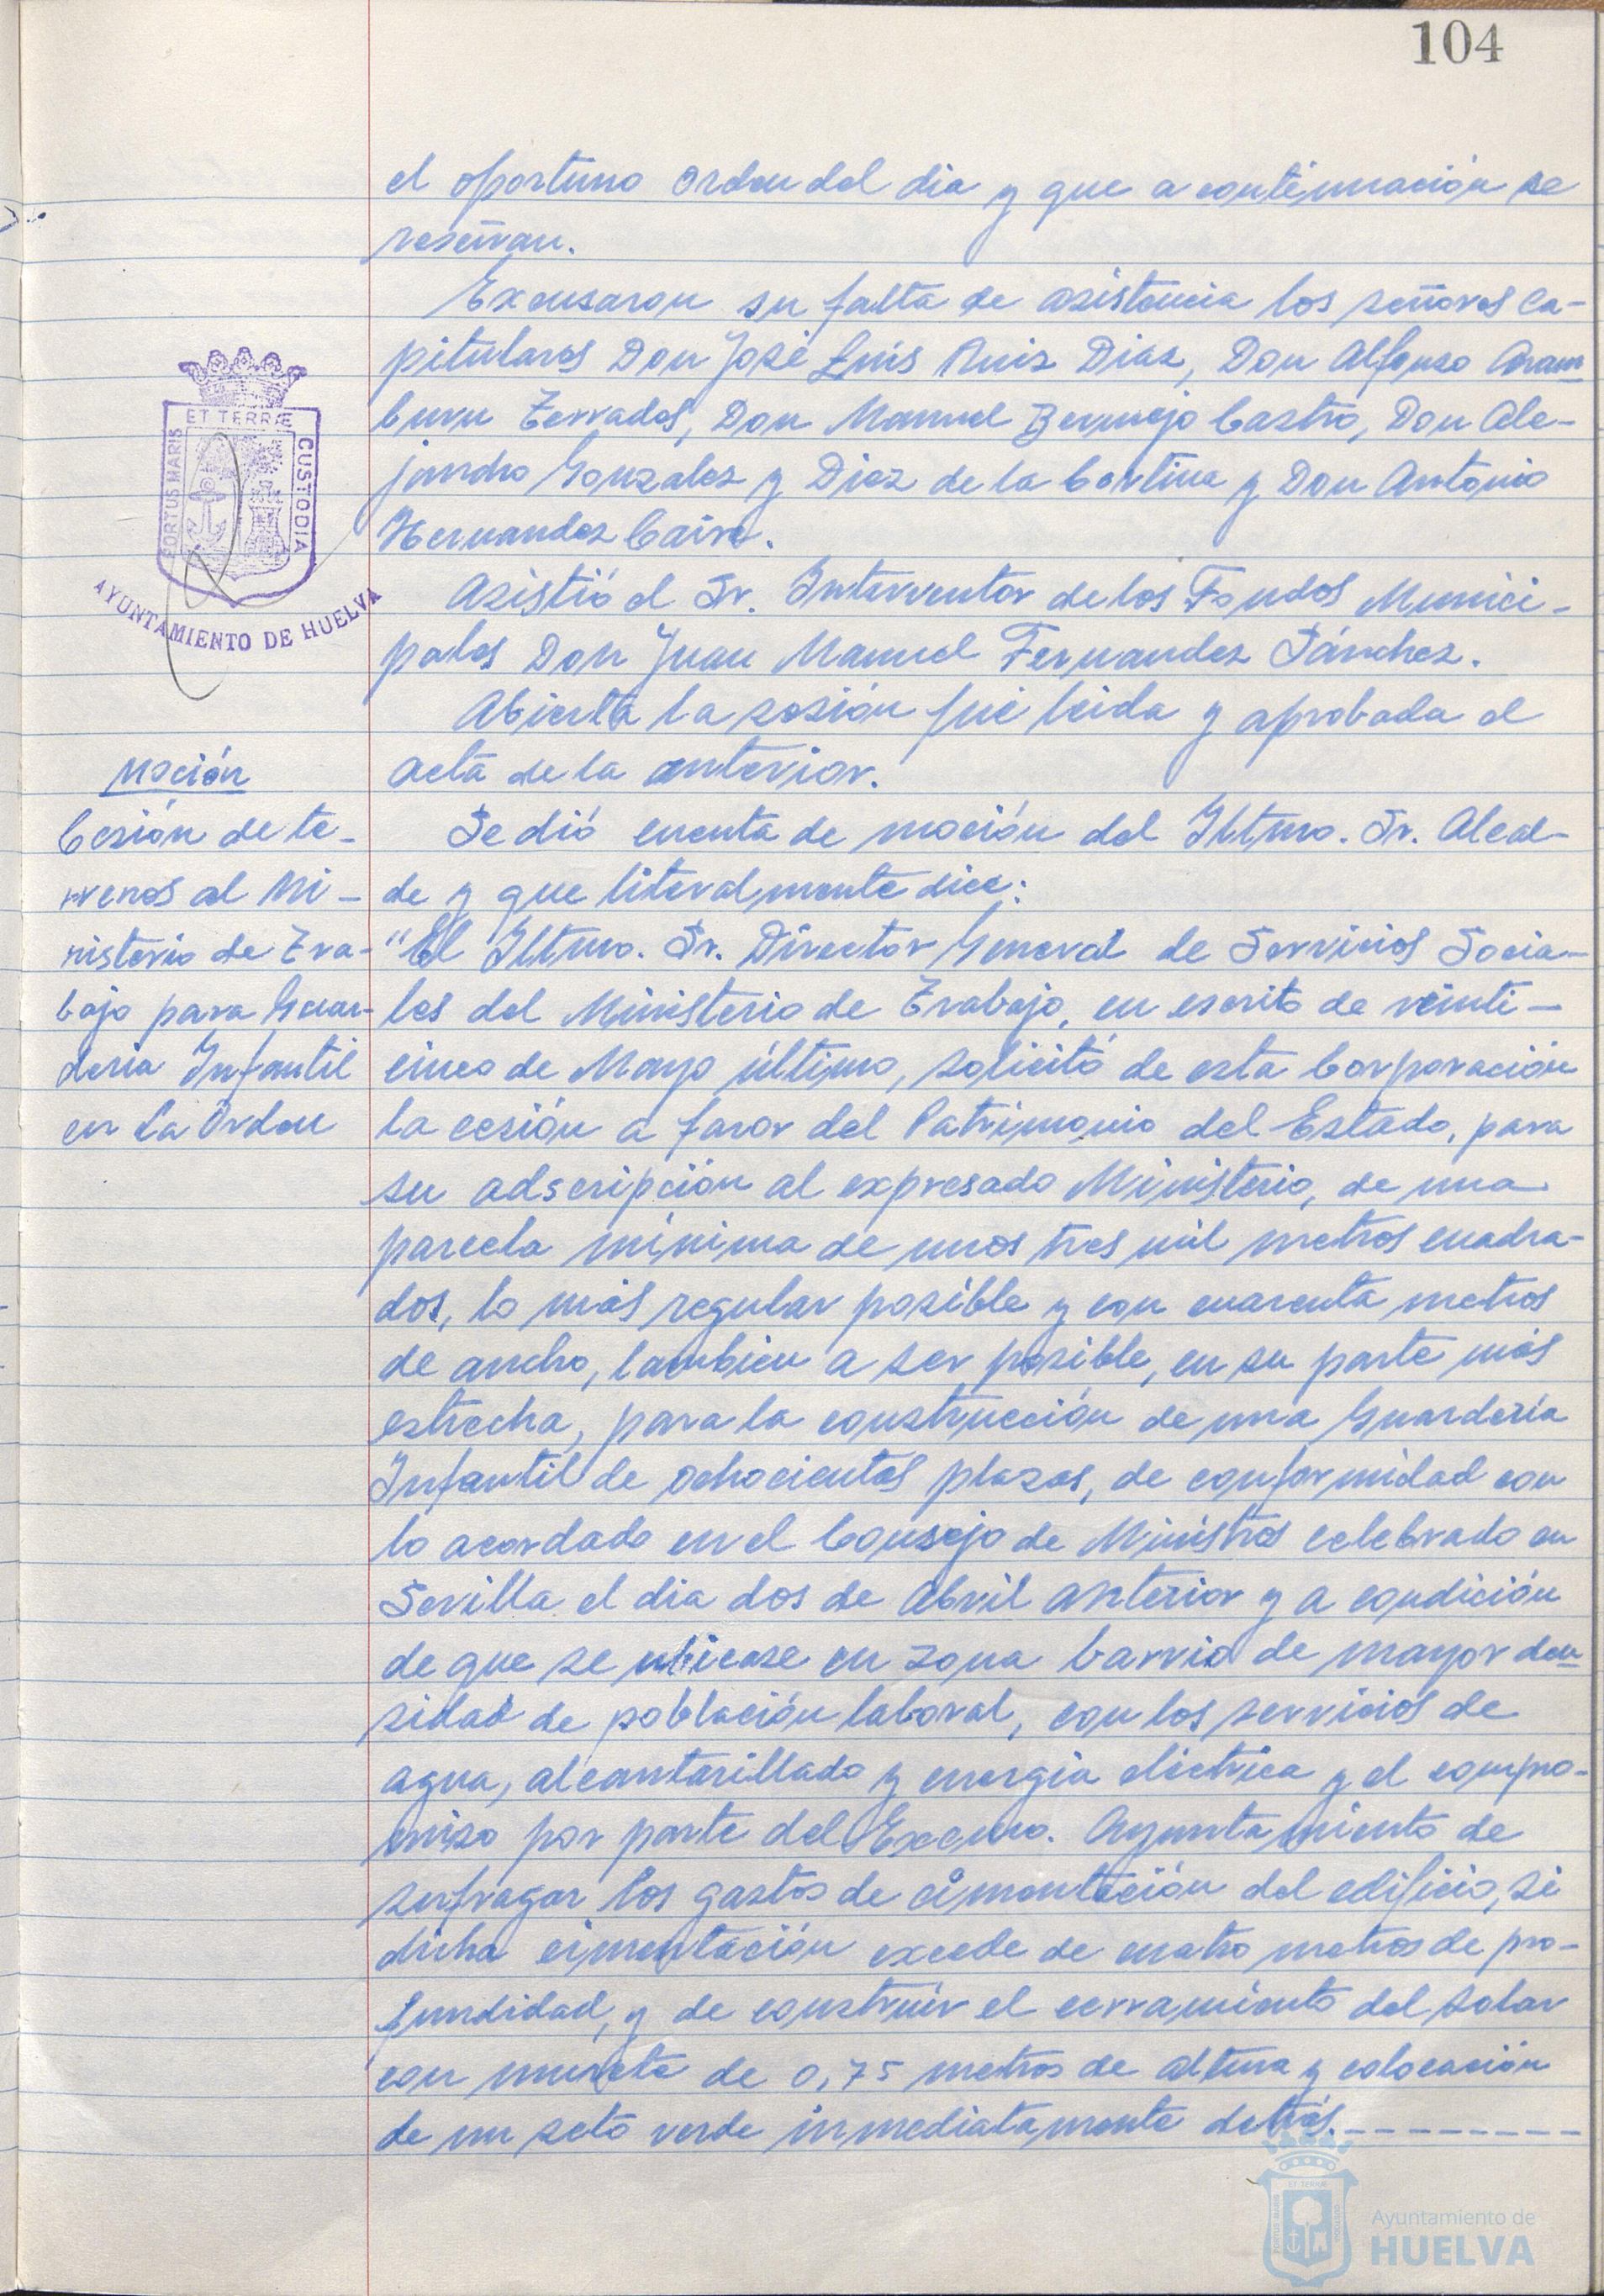 104
el oportuno Orden del dia y que a continuación se
reseñan.
Excusaron su falta de asistencia los señores Ca-
pitulares Don José Luis Ruiz Diaz, Don Alfonso Aram-
buru Terrades, Don Manuel Bermejo Castro, Don Ale-
jandro Gonzalez y Diez de la Cortina y Don Antonio
Hernandez Caire.
Asistió el Sr. Interventor de los Fondos Munici-
pales Don Juan Manuel Fernandez Sánchez.
Abierta la sesión fué leida y aprobada el
acta de la anterior.
PORTUS MARIS
ET TERRÆ
CUSTODIA
AYUNTAMIENTO DE HUELVA
Moción
Cesión de te-
rrenos al Mi-
nisterio de Tra-
bajo para Guar-
deria Infantil
en La Orden
Se dió cuenta de moción del Iltmo. Sr. Alcal-
de y que literalmente dice:
"El Iltmo. Sr. Director General de Servicios Socia-
les del Ministerio de Trabajo, en escrito de veinti-
cinco de Mayo último, solicitó de esta Corporación
la cesión a favor del Patrimonio del Estado, para
su adscripción al expresado Ministerio, de una
parcela mínima de unos tres mil metros cuadra-
dos, lo más regular posible y con cuarenta metros
de ancho, tambien a ser posible, en su parte más
estrecha, para la construcción de una Guardería
Infantil de ochocientas plazas, de conformidad con
lo acordado en el Consejo de Ministros celebrado en
Sevilla el dia dos de Abril anterior y a condición
de que se ubicase en zona barrio de mayor den-
sidad de población laboral, con los servicios de
agua, alcantarillado y energia eléctrica y el compro-
miso por parte del Excmo. Ayuntamiento de
sufragar los gastos de cimentación del edificio, si
dicha cimentación excede de cuatro metros de pro-
fundidad, y de construir el cerramiento del solar
con murete de 0,75 metros de altura y colocación
de un seto verde inmediatamente detrás.---------
Ayuntamiento de
HUELVA